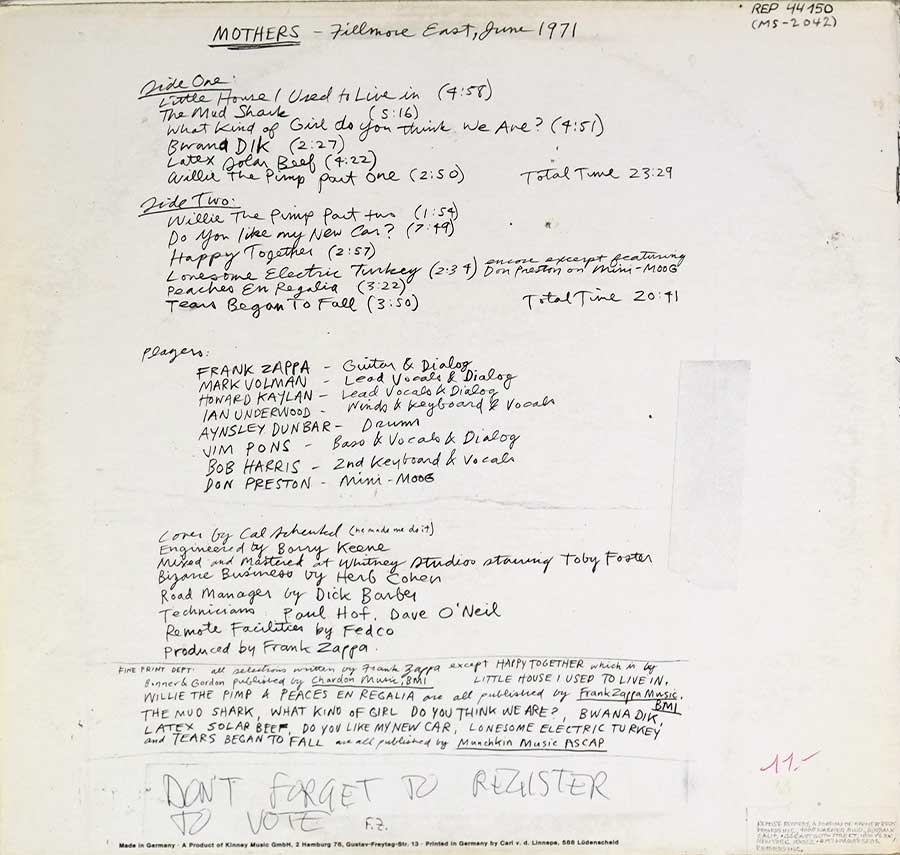 MOTHERS - Fillmore East, June 1971
REP 44150
(MS-2042)
Side One:
Little House I Used to Live in (4:58)
The Mud Shark (5:16)
What Kind of Girl do you think we Are? (4:51)
Bwana Dik (2:27)
Latex Solar Beef (4:22)
Willie The Pimp part One (2:50) Total Time 23:29
Side Two:
Willie The Pimp Part two (1:54)
Do You like my New Car? (7:49)
Happy Together (2:57)
Lonesome Electric Turkey (2:34) encore excerpt featuring Don Preston on Mini-Moog
Peaches En Regalia (3:22)
Tears Began To Fall (3:50) Total Time 20:41
Players:
FRANK ZAPPA - Guitar & Dialog
MARK VOLMAN - Lead Vocals & Dialog
HOWARD KAYLAN - Lead Vocals & Dialog
IAN UNDERWOOD - Winds & Keyboard & Vocals
AYNSLEY DUNBAR - Drums
JIM PONS - Bass & Vocals & Dialog
BOB HARRIS - 2nd Keyboard & Vocals
DON PRESTON - Mini-Moog
Cover by Cal Schenkel (he made me do it)
Engineered by Barry Keene
Mixed and Mastered at Whitney Studios starring Toby Foster
Bizarre Business by Herb Cohen
Road Manager by Dick Barber
Technicians Paul Hof, Dave O'Neil
Remote Facilities by Fedco
Produced by Frank Zappa.
FINE PRINT DEPT: all selections written by Frank Zappa except HAPPY TOGETHER which is by
Bonner & Gordon published by Chardon Music, BMI LITTLE HOUSE I USED TO LIVE IN,
WILLIE THE PIMP & PEACES EN REGALIA are all published by Frank Zappa Music, BMI
THE MUD SHARK, WHAT KIND OF GIRL DO YOU THINK WE ARE?, BWANA DIK,
LATEX SOLAR BEEF, DO YOU LIKE MY NEW CAR, LONESOME ELECTRIC TURKEY
and TEARS BEGAN TO FALL are all published by Munchkin Music ASCAP
11.-
DON'T FORGET TO REGISTER
TO VOTE F.Z.
Made in Germany · A Product of Kinney Music GmbH, 2 Hamburg 76, Gustav-Freytag-Str. 13 · Printed in Germany by Carl v. d. Linnepe, 588 Lüdenscheid